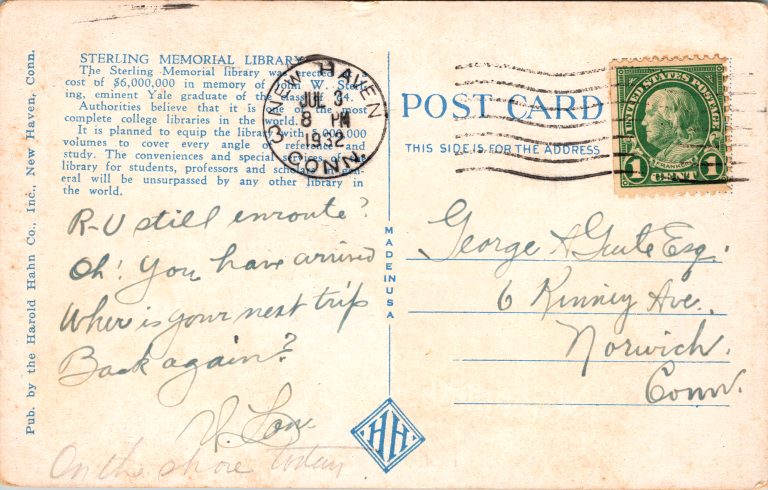 STERLING MEMORIAL LIBRARY
The Sterling Memorial library was erected at a
cost of $6,000,000 in memory of John W. Sterl-
ing, eminent Yale graduate of the class of
Authorities believe that it is one of the most
complete college libraries in the world.
It is planned to equip the library with 5,000,000
volumes to cover every angle of reference and
study. The conveniences and special services of the
library for students, professors and scholars in gen-
eral will be unsurpassed by any other library in
the world.
NEW HAVEN
3
JUL 3
8 PM
1932
CONN.
R-U still enroute?
Oh! You have arrived
Where is your next trip
Back again?
On the shore today
Pub. by the Harold Hahn Co., Inc., New Haven, Conn.
MADE IN USA
HH
POST CARD
THIS SIDE IS FOR THE ADDRESS
UNITED STATES POSTAGE
FRANKLIN
1 CENT 1
George A Guile Esq.
6 Kinney Ave.
Norwich.
Conn.